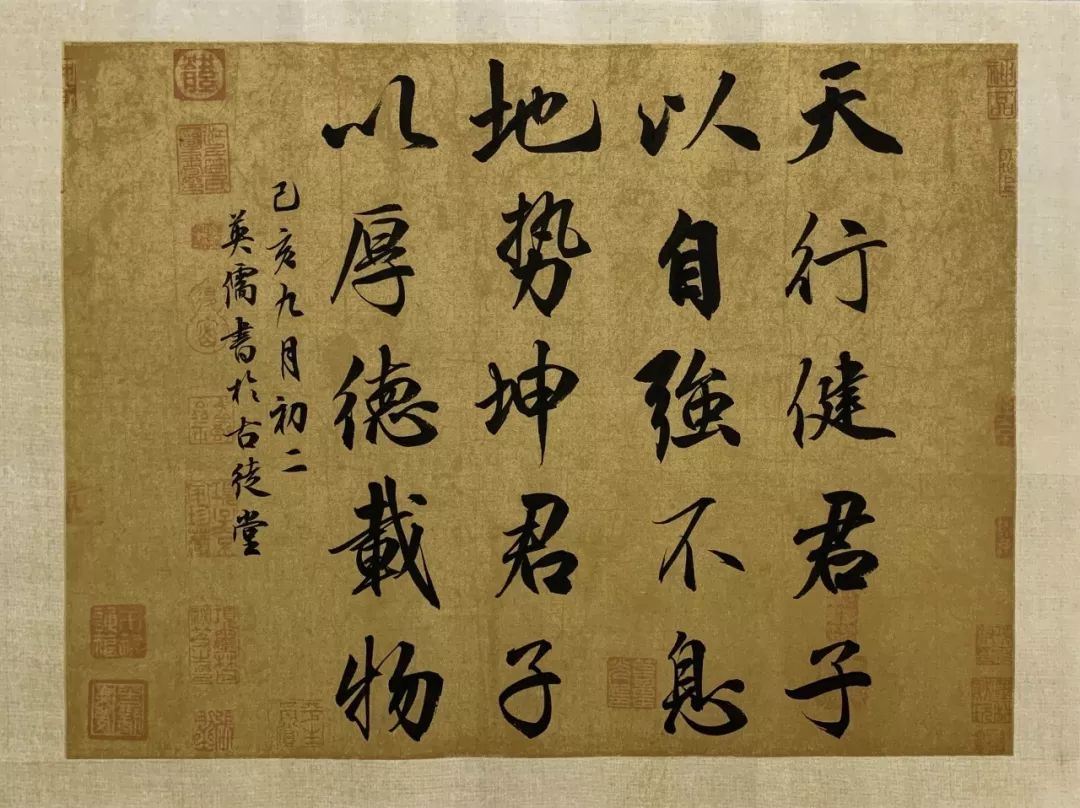 天行健君子
以自強不息
地势坤君子
以厚德載物
己亥九月初二
英儒書於古徒堂